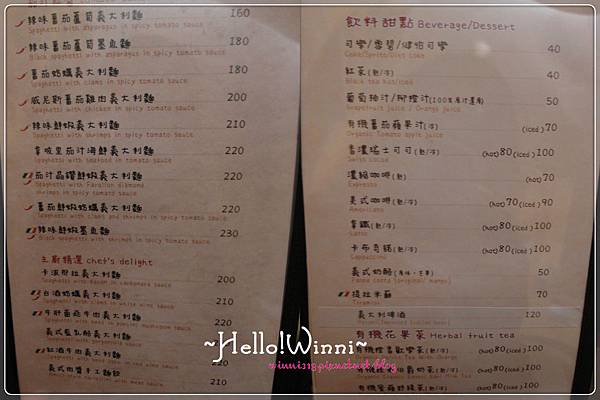 辣味番茄蘆筍義大利麵 160
Spaghetti with asparagus in spicy tomato sauce
辣味番茄蘆筍墨魚麵 180
Black spaghetti with asparagus in spicy tomato sauce
番茄蛤蠣義大利麵 180
Spaghetti with clams in spicy tomato sauce
威尼斯番茄雞肉義大利麵 200
Spaghetti with chicken in spicy tomato sauce
辣味鮮蝦義大利麵 210
Spaghetti with shrimps in spicy tomato sauce
拿坡里茄汁海鮮義大利麵 220
Spaghetti with seafood in tomato sauce
茄汁晶鑽鮮蝦義大利麵 220
Spaghetti with Farallon diamond
shrimps in spicy tomato sauce
番茄鮮蝦蛤蠣義大利麵 220
Spaghetti with clams and shrimps in spicy tomato sauce
辣味鮮蝦墨魚麵 230
Black spaghetti with shrimps in spicy tomato sauce
主廚精選 chef's delight
卡波那拉義大利麵 200
Spaghetti with bacon in carbonara sauce
白酒蛤蠣義大利麵 210
Spaghetti with clams in white wine sauce
牛肝蕈菇牛肉義大利麵 220
210
紅酒牛肉義大利麵
義式肉醬手工麵餃 210
飲料甜點 Beverage/Dessert
可樂/雪碧/健怡可樂 40
Coke/Sprite/Diet coke
紅茶(熱/冷) 40
Black tea hot/iced
葡萄柚汁/柳橙汁(100%原汁還原) 50
Grapefruit juice / Orange juice
有機番茄蘋果汁(冷) (iced)70
Organic Tomato apple juice
香濃瑞士可可(熱/冷) (hot)80(iced)100
Swiss cocoa
濃縮咖啡(熱) (hot)70
Espresso
美式咖啡(熱/冷) (hot)70(iced)90
Americano
拿鐵(熱/冷) (hot)80(iced)100
Latte
卡布奇諾(熱/冷) (hot)80(iced)100
Cappuccino
義式奶酪(原味、芒果) 50
Panna cotta (original/ mango)
提拉米蘇 70
Tiramisu
義大利啤酒 120
有機花果茶 Herbal fruit tea
(hot)80(iced)100
(hot)80(iced)100
(hot)80(iced)100
~Hello!Winni~
winni319.pixnet.net/blog